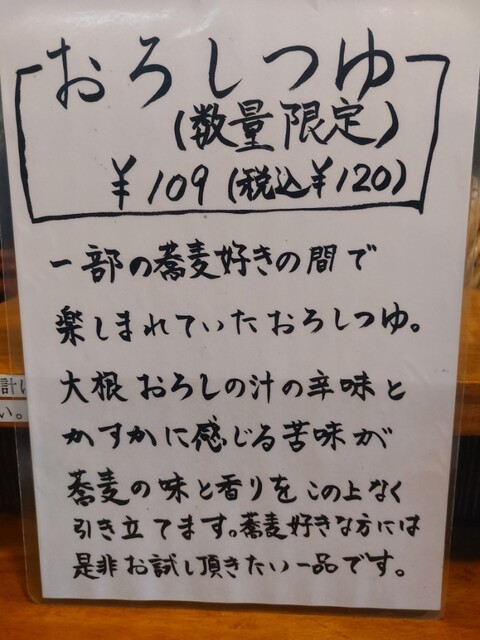 おろしつゆ
(数量限定)
¥109(税込¥120)
一部の蕎麦好きの間で
楽しまれていたおろしつゆ。
大根おろしの汁の辛味と
かすかに感じる苦味が
蕎麦の味と香りをこの上なく
引き立てます。蕎麦好きな方には
是非お試し頂きたい一品です。
計い
い。